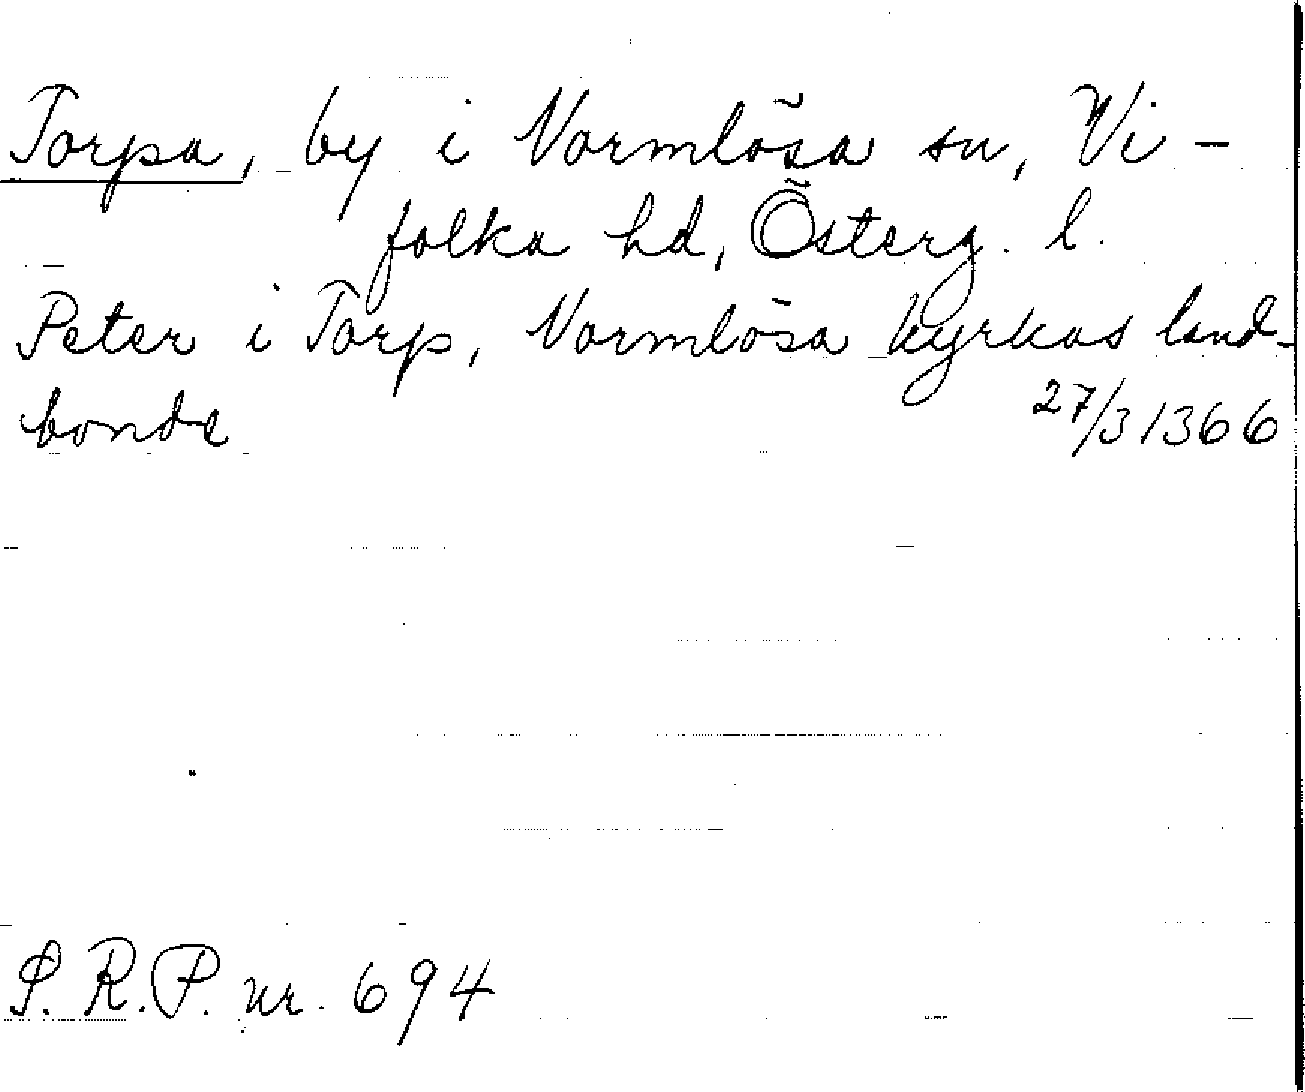 Torpa, by i Normlösa sn, Vi-
folka hd, Österg. l.
Peter i Torp, Normlösa kyrkas land-
bonde 27/3 1366
S.R.P. nr. 694